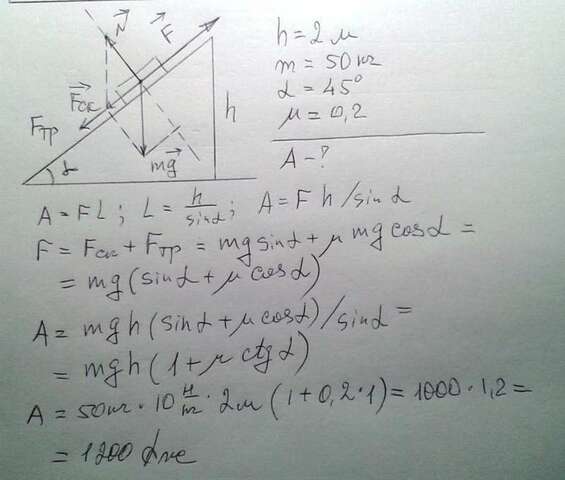 N
F
Fск
Fтр
mg
h
α
h = 2 м
m = 50 кг
α = 45°
μ = 0,2
A - ?
A = FL ; L = h/sinα ; A = F h/sinα
F = Fск + Fтр = mg sinα + μ mg cosα =
= mg (sinα + μ cosα)
A = mgh (sinα + μ cosα)/sinα =
= mgh (1 + μ ctg α)
A = 50кг · 10 н/кг · 2м (1 + 0,2 · 1) = 1000 · 1,2 =
= 1200 Дж